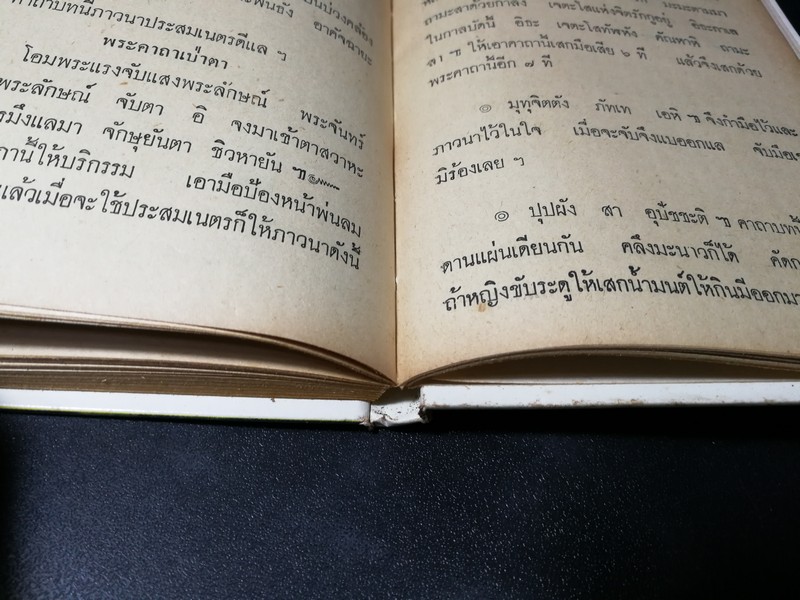 คาถาบทนี้ภาวนาประสมเนตรดีแล ๆ
พระคาถาเป่าตา
โอมพระแรงจับแสงพระลักษณ์ พระจันทร์
พระลักษณ์ จับตา อิ จงมาเข้าตาสวาหะ
รมึงแลมา จักษุยันตา ชิวหายัน ฯ๛
ถานี้ให้บริกรรม เอามือป้องหน้าพ่นลม
แล้วเมื่อจะใช้ประสมเนตรก็ให้ภาวนาดังนี้
ในกาลบัดนี้ อิธะ เจตะโสทัฬหัง คัณหาหิ ถามะ
สา ฯ ให้เอาคาถานี้เสกมือเสีย ๖ ที แล้วจึงเสกด้วย
พระคาถานี้อีก ๗ ที
๏ มุทุจิตตัง ภัทเท เอหิ ฯ จึงกำมือไว้และ
ภาวนาไว้ในใจ เมื่อจะจับจึงแบออกแล จับมือเข
มิร้องเลย ๆ
๏ ปุปผัง สา อุปัชชะติ ฯ คาถาบทนี้
ดานแผ่นเดียนกัน คลึงมะนาวก็ได้ คัดก
ถ้าหญิงขับระดูให้เสกน้ำมนต์ให้กินมีออกมา